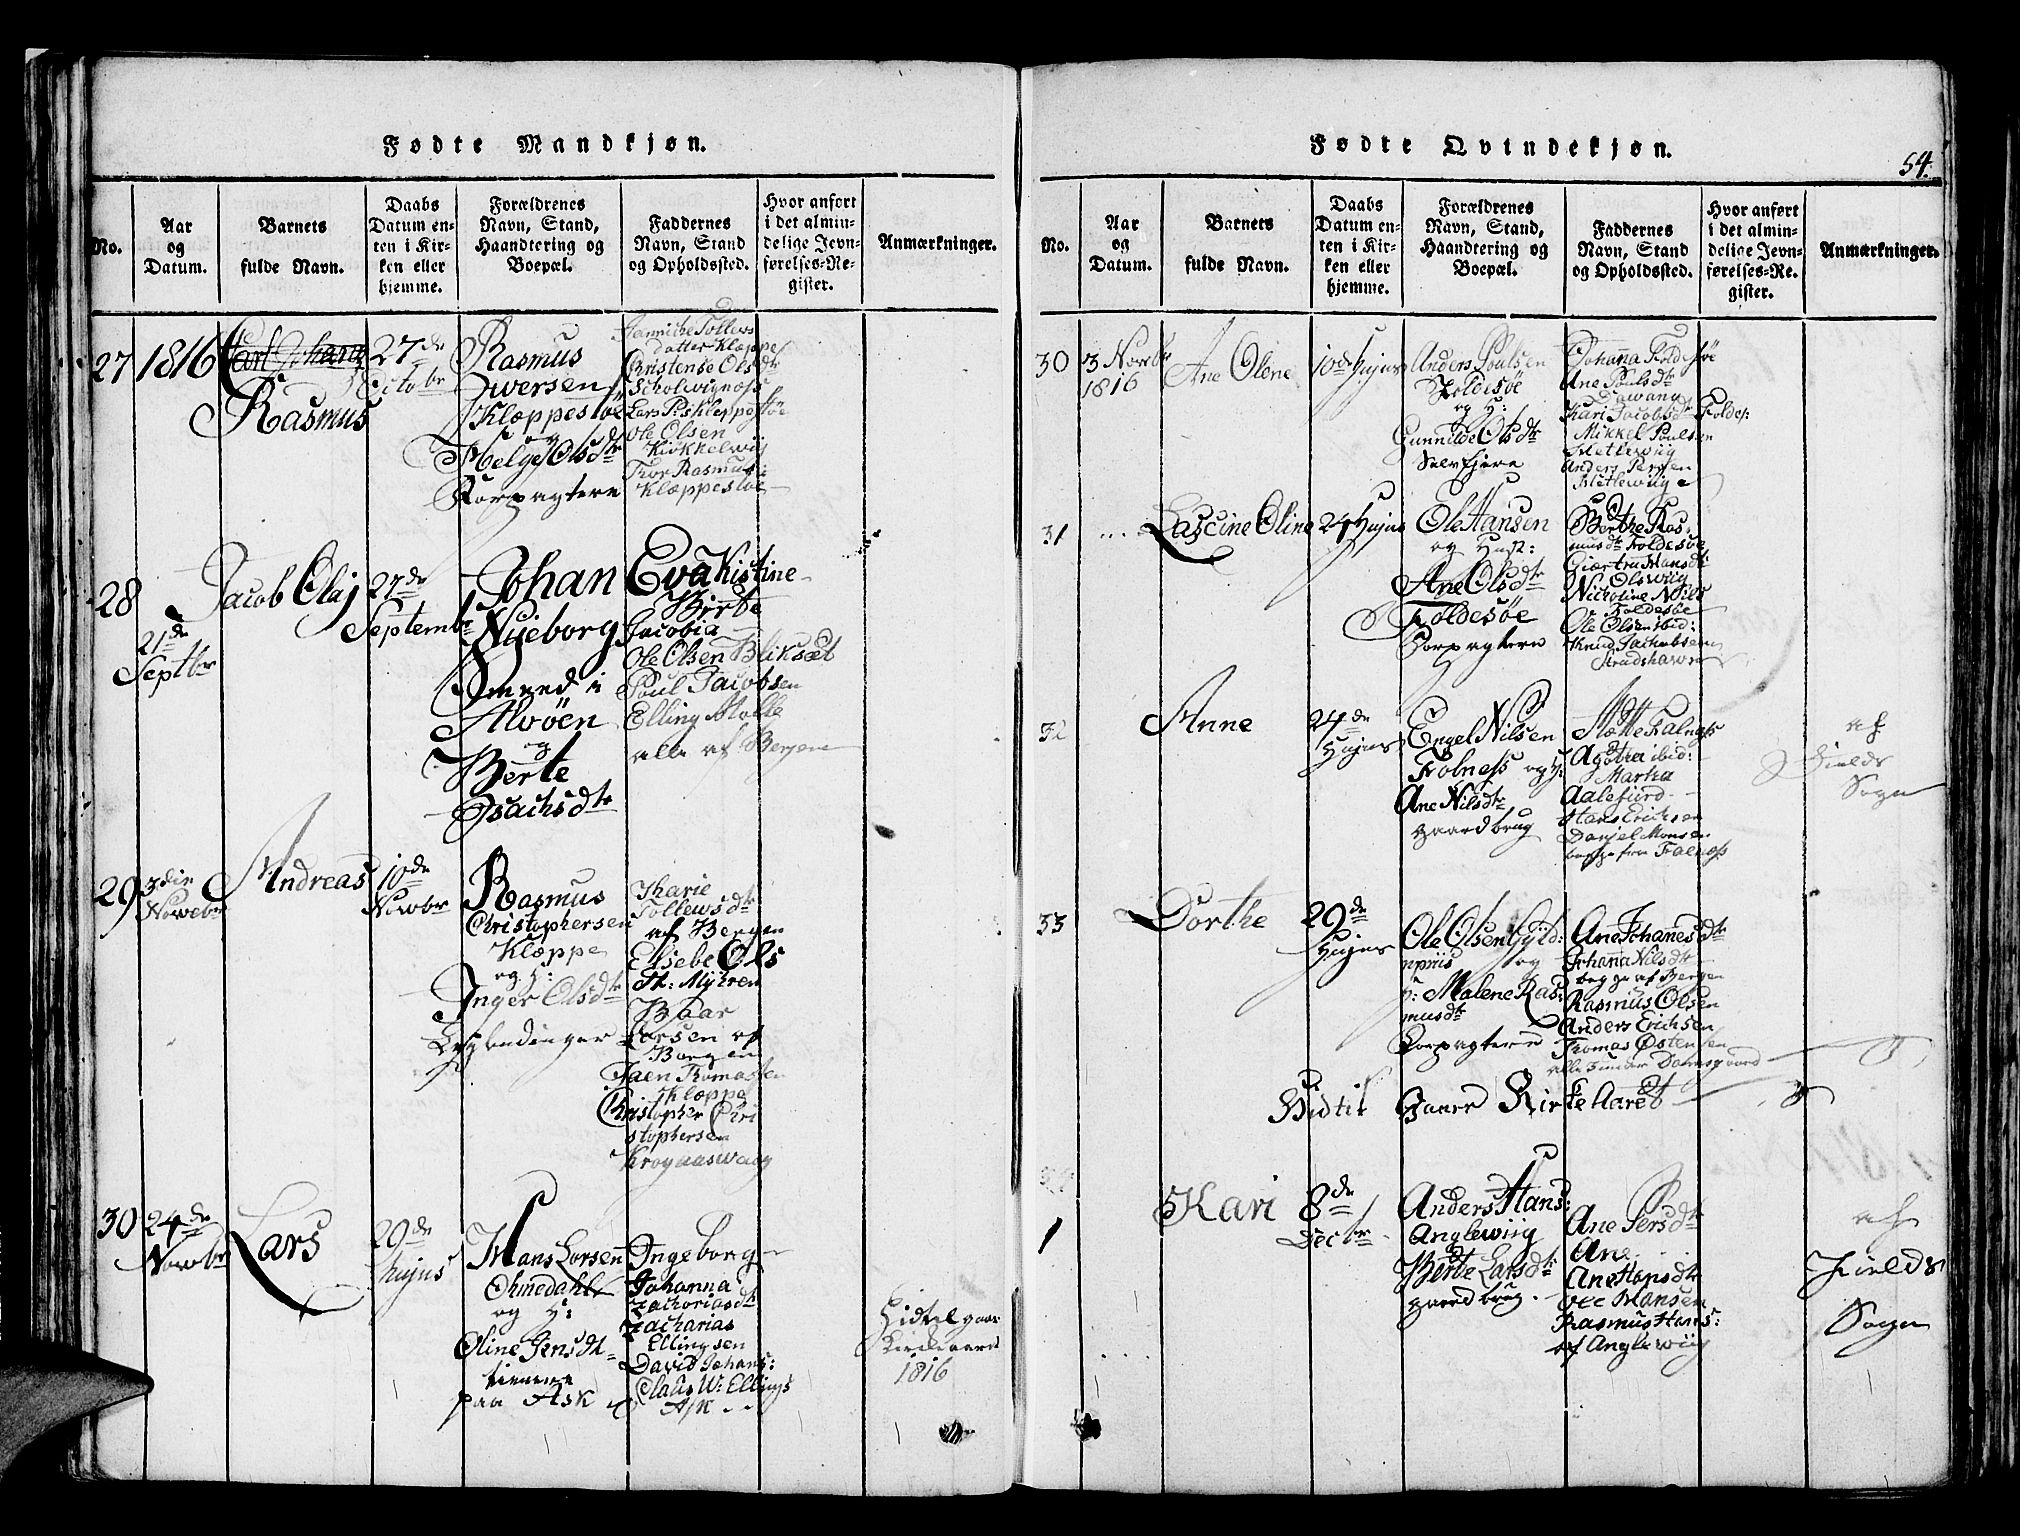 Fødte Mandkjøn.
No.
Aar og Datum.
Barnets fulde Navn.
Daabs Datum enten i Kirken eller hjemme.
Forældrenes Navn, Stand, Haandtering og Boepæl.
Faddernes Navn, Stand og Opholdssted.
Hvor anført i det almindelige Jevnførelses-Register.
Anmærkninger.
27
1816
Carl Johan
Rasmus
27de
Octobr
Rasmus
Iversen
Kloppestöe
og
Helge Olsdtr
Forpagtere
Tollews
datter Kloppe
Christense Olsdtr
Lars P:s Kleppestöe
Ole Olsen
Thor Rasmus:
Kloppestöe
28
21de
Septbr
Jacob Olaj
27de
Septembr
Johan
Nyeborg
Smeed i
Alvöen
og
Berte
Isachsdtr
Eva Kistine
Birte
Jacobia
Ole Olsen Bliksæt
Poul Jacobsen
Elling Molle
alle af Bergen
29
3die
Novebr
Andreas
10de
Novbr
Rasmus
Christophersen
Kloppe
og H:
Inger Olsdtr
Tharie
Tollewsdtr
af Bergen
Elsebe Ols
St: Myhren
Baar
Larsen af
Bergen
Thomassen
Kloppe
Christopher Chri
stophersen
30
24de
Novbr
Lars
29de
hujus
Hans Lorsen
og H:
Oline Jensdtr
tienene
paa Ask
Ingeborg
Johanna
Zachoriasdtr
Zacharias
Ellingsen
David Johans:
Claus W: Ellings
Ask
1816
Fødte Qvindekjøn.
54.
No.
Aar og Datum.
Barnets fulde Navn.
Daabs Datum enten i Kirken eller hjemme.
Forældrenes Navn, Stand, Haandtering og Boepæl.
Faddernes Navn, Stand og Opholdssted.
Hvor anført i det almindelige Jevnførelses-Re.gister.
Anmærkninger.
30
3 Novbr
1816
Ane Oline
10de hujus
Anders Poulsen
Foldesöe
og H:
Gunnilde Olsdtr
Selvejere
Johanna Foldesöe
Ane Poulsdtr
Kari Jacobsdtr Foldes:
Mikkel Poulsen
Hetlewiig
Anders Persen
Hetlewiig
31
Lascine Oline
24 hujus
Ole Hansen
og Hust:
Ane Olsdtr
Foldesöe
Forpagtere
Berthe Ras
musdtr Foldesöe
Giærtru Hansdtr
Olswiig
Nicholine Nils
Foldesöe
Ole Olsen ibid:
Knud Jachobsen
32
Anne
24de
Hujus
Engel Nilsen
Folness og H:
Ane Nilsdtr
gaardbrug
Mette Falness
Agatha ibid:
Martha
Aalefiord
Hans Erichsen
Danjel Monsen
begge fra Falness
af
Fields
Sogn
33
Dorthe
29de
Hujus
Ole Olsen
og
H: Malene Ras:
musdtr
Forpagtere
Ane Johanesdtr
Johanna Nilsdtr
begge af Bergen
Rasmus Olsen
Anders Erichsen
Thomas Östensen
Hidtil Gaaer Kirke Aaret
1
Kari
8de
Decbr
Anders Hans:
Anglewiig
Berte Larsdtr
gaardbrug
Ane Persdtr
Ane
Ane Hansdtr
Ole Hansen
Rasmus Hans:
af Anglewiig
af
Fields
Sogn